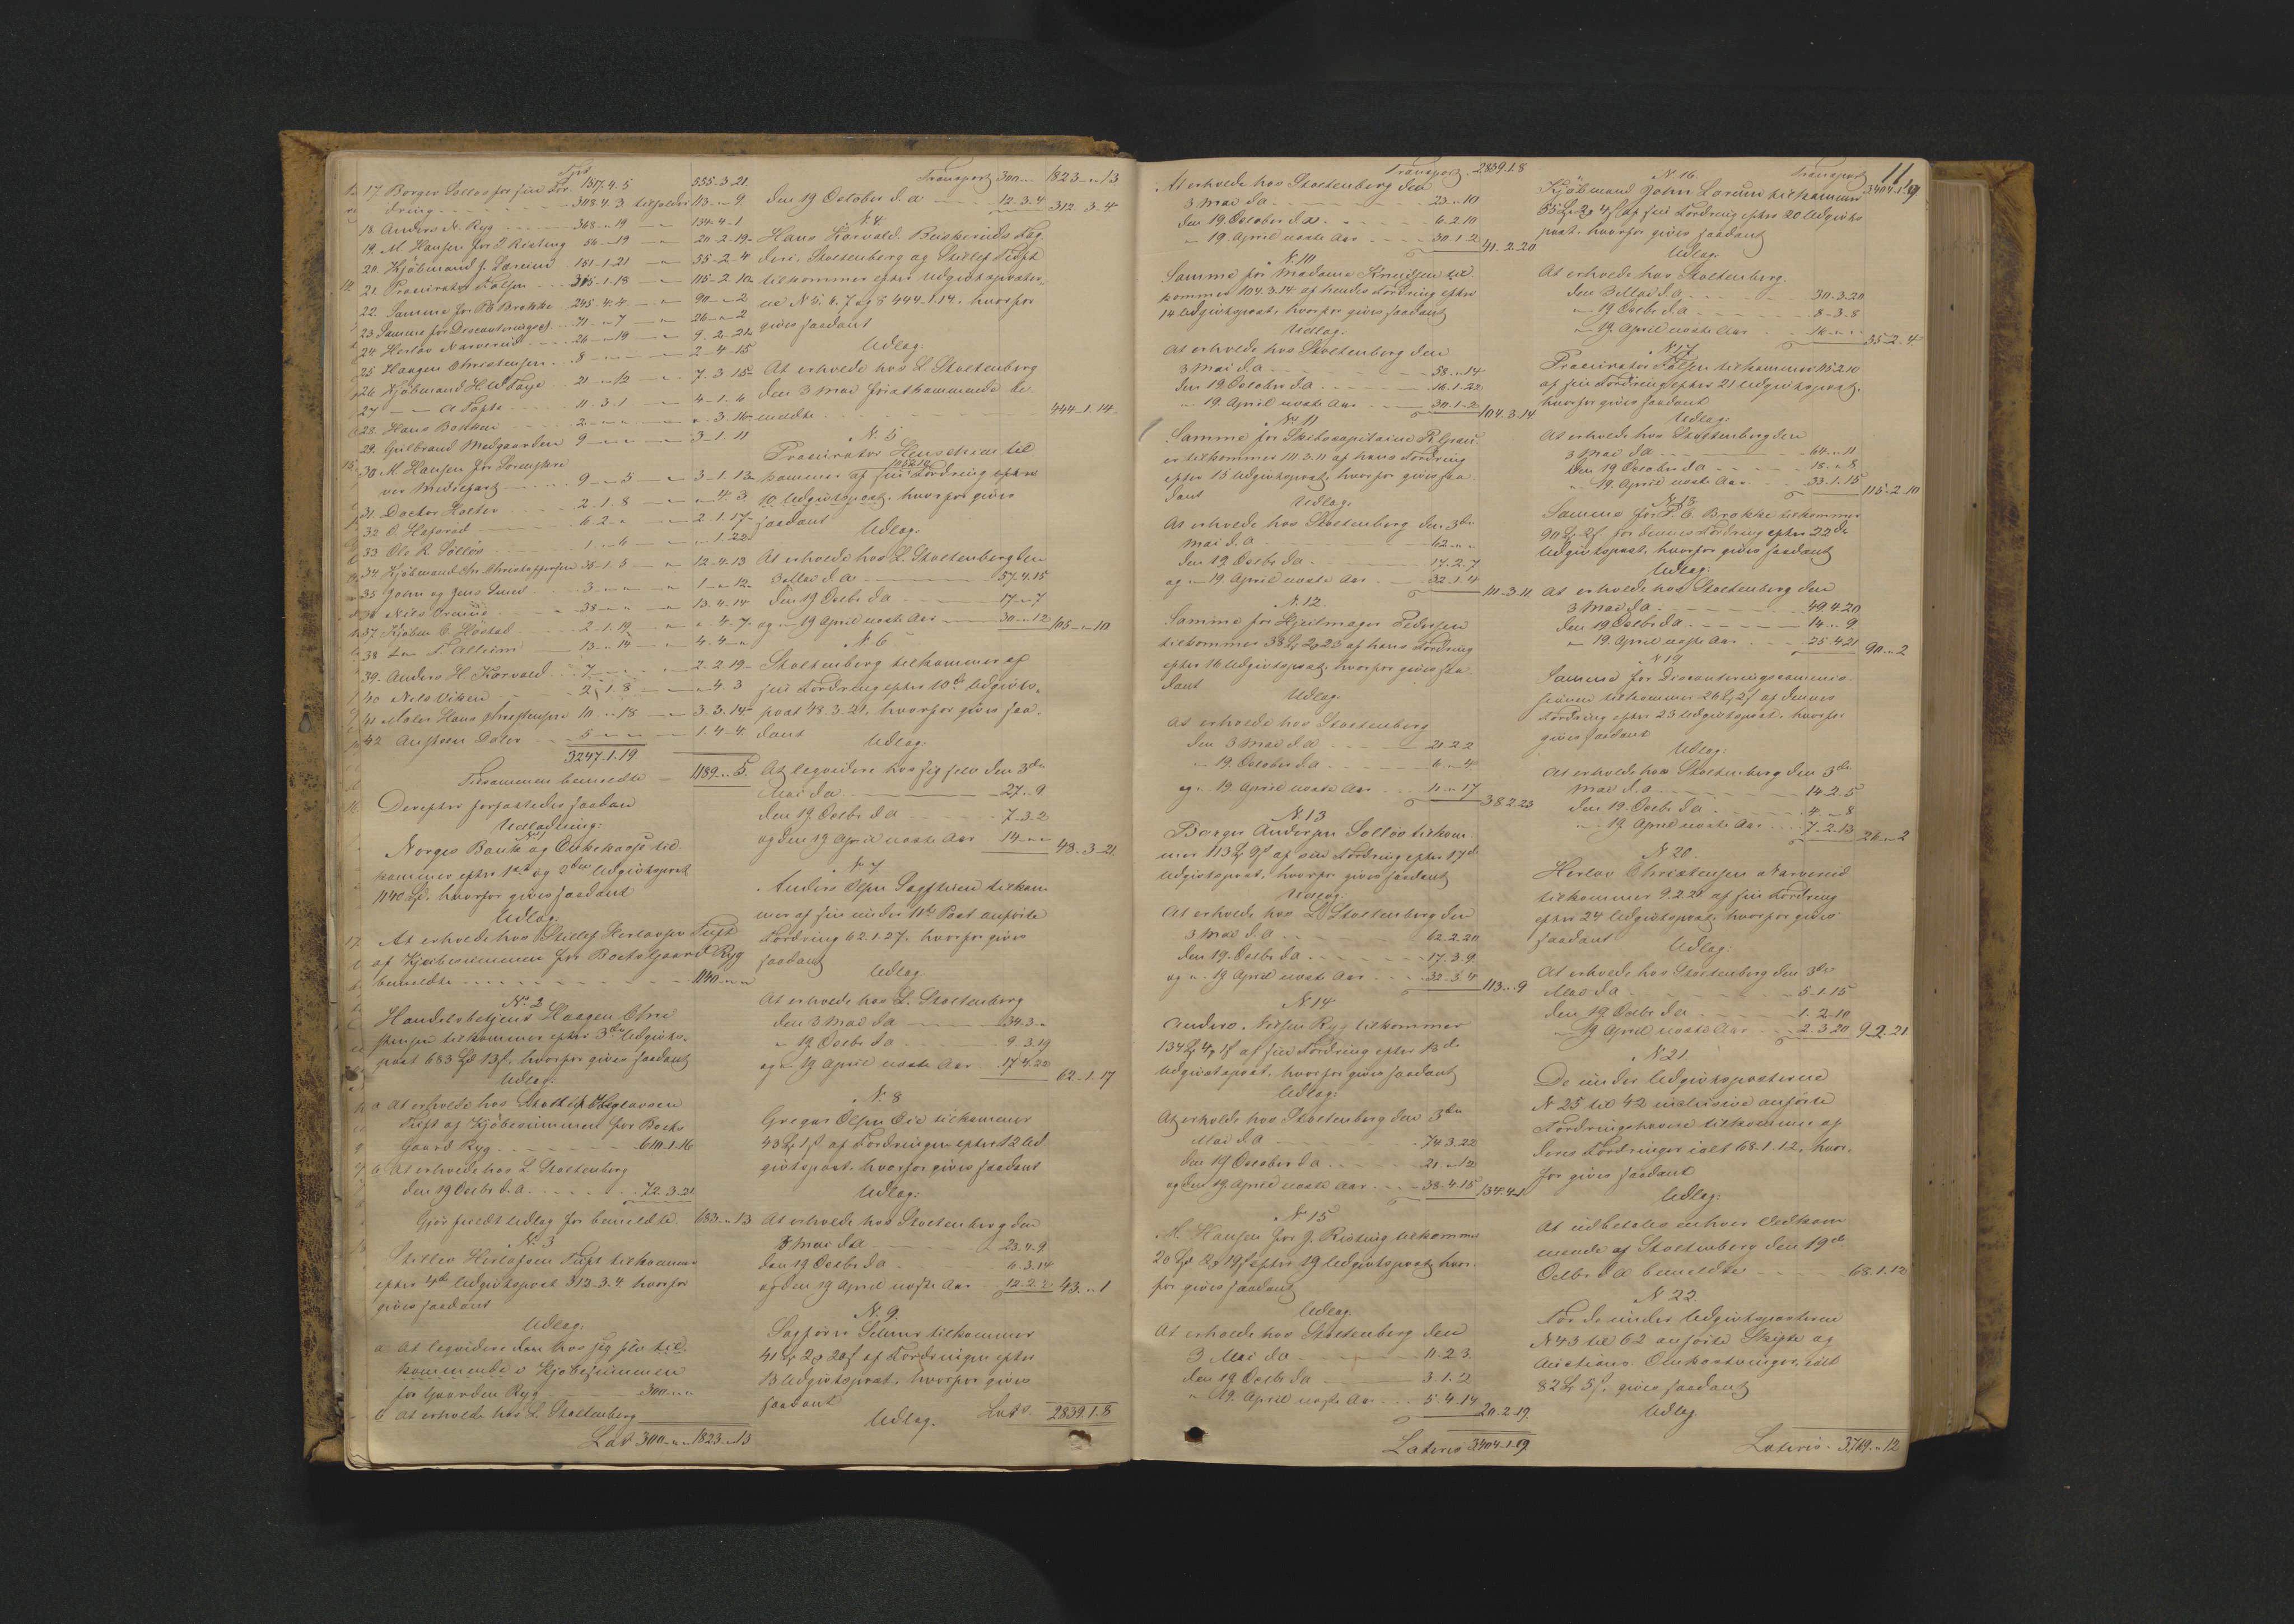 Tpt 1517.4.5 555-3-21.
17. Borger Solløs for sin For-
dring 308.4.3 tilfalder 113-"-9
18. Anders N. Ryg 368-"-19 134-4-1
19. M. Hansen for J. Risting 56-"-19 20-2-19
20. Kjøbmand J. Lareim 151-1-21 55-2-4
21. Procurator Falsen 315-1-18 115-2-10
22. Samme for P. C. Brokke 245-4-4 90-"-2
23 Samme for Disconteringsc. 71-"-7 26-"-2
24. Herlov Narverud 26-"-19 9-2-21
25 Haagen Christensen 8 2-4-15
26 Kjøbmand H. W. Faye 21-"-12 7-3-15
27 -"- A Tofte 11-3-1 4-1-6
28. Hans Bakken 2 "-3-16
29. Gulbrand Medgaarden 9 3-1-11
30 M Hansen for Sorenskri-
ver 9-"-5 3-1-13
31. Doctor Holter 2-1-8 "-4-3
32 O. Hafsrød 6-2-" 2-1-17
33 Ole R. Solløs 1-"-6 "-1-22
34 Kjøbmand Chr. Christophersen 35-1-3 12-4-13
35 John og Jens Lund 3 1-"-12
36 Nils 38 13-4-14
37. Kjøbm C. Høstad 2-1-19 "-4-7
38 T. Alleim 13-"-14 4-4-"
39. Anders H. Korvald 7 2-2-19
40 Nils Viken 2-1-8 "-4-3
41 Maler Hans Christensen 10-"-18 3-3-14
42 5 1-4-4
3247.1.19.
Tilsammen bemeldte 1189-"-5.
Derefter forfattedes saadan
Udlodning:
No 1
Norges Bank og Enkekasse til-
kommer efter 1ste og 2den Udgiftspost
1140 Spd, hvorfor gives saadant
Udlag:
At erholde hos Stillef Herlovsen Tuft
af Kjøbesummen for Boets Gaard Ryg
bemeldte 1140-"-"
No. 2
Handelsbetjent Haagen Chri-
stensen tilkommer efter 3die Udgifts-
post 683 Spd 13 s, hvorfor gives saadant
Udlag:
a At erholde hos Stillef Herlovsen
Tuft af Kjøbesummen for Boets
Gaard Ryg 610-1-16
b At erholde hos L. Stoltenberg
den 19 Octbr d. A. 72.3.21
Gjør fuldt Udlag for bemeldte. 683-"-13
No. 3
Stillev Herlofsen Tuft tilkommer
efter 4de Udgiftspost 312-3-4 hvorfor
gives saadant
Udlag:
a At leqvidere den hos sig selv til-
kommende i Kjøbesummen
for Gaarden Ryg 300-"-"
b At erholde hos L. Stoltenberg
Lat 300-"-" 1823-"-13
Transport 300-"-" 1823-"-13
den 19 October d. a 12-3-4 312-3-4
N. 4
Hans Korvald, Buskeruds Fog-
deri, Stoltenberg og Stillef Tuft
tilkommer efter Udgiftsposter-
ne N 5. 6. 7 og 8 444.1.14, hvorfor
gives saadant
Udlag:
At erholde hos L. Stoltenberg
den 3 Mai førstkommende be-
meldte 444-1-14
N. 5
Procurator Henschien til-
kommer af sin Fordring efter
105.2.10
10 Udgiftspost, hvorfor gives
saadant
Udlag:
At erholde hos L. Stoltenberg den
3 Mai d. a. 57.4.15
den 19 Octbr d a 17-"-7
og -"- 19 April næste Aar 30-"-12 105-"-10
N. 6
Stoltenberg tilkommer af
sin Fordring efter 10de Udgifts-
post 48.3.21, hvorfor gives saa-
dant
Udlag:
At leqvidere hos sig selv den 3die
Mai d a 27-"-9
den 19 Octbr d a 7-3-2
og den 19 April næste Aar 14-"-" 48-3-21
N. 7
Anders Olsen tilkom-
mer af sin under 11te Post anførte
Fordring 62.1.27, hvorfor gives
saadant
Udlag
At erholde hos L. Stoltenberg
den 3 Mai d a 34.3-"
-"- 19 Octbr d a 9.3.19
og -"- 19 April næste Aar 17.4.22
62-1-17
N. 8
Gregar Olsen Eie tilkommer
43 Spd 1 s af Fordringen efter 12 Ud-
giftspost, hvorfor gives saadant
Udlag:
At erholde hos Stoltenberg den
3 Mai d a 23.4.9
den 19 Octbr d a 6.3.14
og den 19 April næste Aar 12.2.2 43-"-1
N. 9.
Sagfører Selmer tilkommer
41 Spd 2 20 s af Fordringen efter
13 Udgiftspost, hvorfor gives
saadant
Udlag. Lats. 2839.1.8
Transport 2839.1.8
At erholde hos Stoltenberg den
3 Mai d a 23-"-10
den 19. October d a 6.2.10
-"- 19. April næste Aar 30.1.2 41-2-20
N. 10
Samme for Madame Knudsen til-
kommer 104.3.14 af hendes Fordring efter
14 Udgiftspost, hvorfor gives saadant
Udlag:
At erholde hos Stoltenberg den
3 Mai d. a 58-"-14
den 19 October d. a 16.1.22
-"- 19. April næste Aar 30.1-2 104.3.14
N. 11
Samme for Skibscapitaine P. Gran-
er tilkommer 111.3.11 af hans Fordring
efter 15 Udgiftspost, hvorfor gives saa-
dant
Udlag.
At erholde hos Stoltenberg den 3die
Mai d. a 62-"-"
den 19 Octbr d a 17.2.7
og -"- 19 April næste Aar 32.1.4 111-3.11
N. 12.
Samme for Hjulmager Pedersen
tilkommer 38 2 23 af hans Fordring
efter 16 Udgiftspost, hvorfor gives saa-
dant
Udlag:
At erholde hos Stoltenberg
den 3 Mai d a 21.2.2
-"- 19. October d. a 6-"-4
og -"- 19 April næste Aar 11-"-17 38.2.23
N. 13
Borger Andersen Solløs tilkom-
mer 113 Spd 9 s af sin Fordring efter 17de
Udgiftspost, hvorfor gives saadant
Udlag:
At erholde hos L. Stoltenberg den
3 Mai d. a 62.2.20
den 19. Octbr d a 17.3.9.
og -"- 19 April næste Aar 32.3.4 113-"-9
N 14
Anders Nilsen Ryg tilkommer
134 4 1 s af sin Fordring efter 18de
Udgiftspost, hvorfor gives saadant
Udlag:
At erholde hos Stoltenberg den 3die
Mai d. a 74.3.22
den 19 October d a 21-"-12
og den 19. April næste Aar 38.4.15 134.4.1
N 15
M. Hansen for J. Risting tilkommer
20 Spd 2 19 s efter 19 Udgiftspost, hvor-
for gives saadant
Udlag.
At erholde hos Stoltenberg den
3 Mai d a 11.2.3.
den 19 Octbr d a 3.1.2
-"- 19. April næste Aar 5.4.14 20.2.19.
Lateris 3404-1-19.
11
N 16. Transport 3404.1.19
Kjøbmand John Lareim tilkommer
55 Spd 2 4 s af sin Fordring efter 20 Udgifts-
post, hvorfor gives saadant
Udlag.
At erholde hos Stoltenberg.
den 3 Mai d. a 30.3.20
-"- 19 Octbr d. a 8-3.8
-"- 19. April næste Aar 16-"-" 55-2.4
N 17.
Procurator Falsen tilkommer 115.2.10
af sin Fordring efter 21 Udgiftspost,
hvorfor gives saadant
Udlag:
At erholde hos Stoltenberg den
3 Mai d a 64-"-11
den 19 October d a 18-"-8
-"- 19. April næste Aar 33.1.15 115-2-10
N. 18
Samme for P. C. Brokke tilkommer
90 Spd 2 s for dennes Fordring efter 22de
Udgiftspost, hvorfor gives saadant
Udlag:
At erholde hos Stoltenberg den
3 Mai d a 49.4.20
den 19 Octbr d a 14-"-9
-"- 19. April næste Aar 25.4.21 90-"-2
N 19
Samme for Disconteringscommis-
sionen tilkommer 26 Spd 2 s af dennes
Fordring efter 23 Udgiftspost, hvorfor
gives saadant
Udlag:
At erholde hos Stoltenberg den 3die
Mai d. a 14.2.5
den 19. Octbr d a 4-"-8
-"- 19 April næste Aar 7-2.13 26-"-2
N 20.
Herlov Christensen Narverud
tilkommer 9.2.21 af sin Fordring
efter 24 Udgiftspost, hvorfor gives
saadant
Udlag:
At erholde hos Stoltenberg den 3die
Mai d a 5.1.15
den 19 Octbr d a 1.2.10
-"- 19 April næste Aar 2.3.20 9-2.21
N 21.
De under Udgiftsposterne
N 25 til 42 inclusive anførte
Fordringshavere tilkommer af
deres Fordringer ialt 68.1.12, hvor-
for gives saadant
Udlag:
At udbetales enhver Vedkom-
mende af Stoltenberg den 19de
Octbr d a bemeldte 68.1.12
N 22.
For de under Udgiftsposterne
N 43 til 62 anførte Skifte og
Auctions Omkostninger, ialt
82 Spd 5 s, gives saadant
Udlag.
Lateris. 3769-"-12